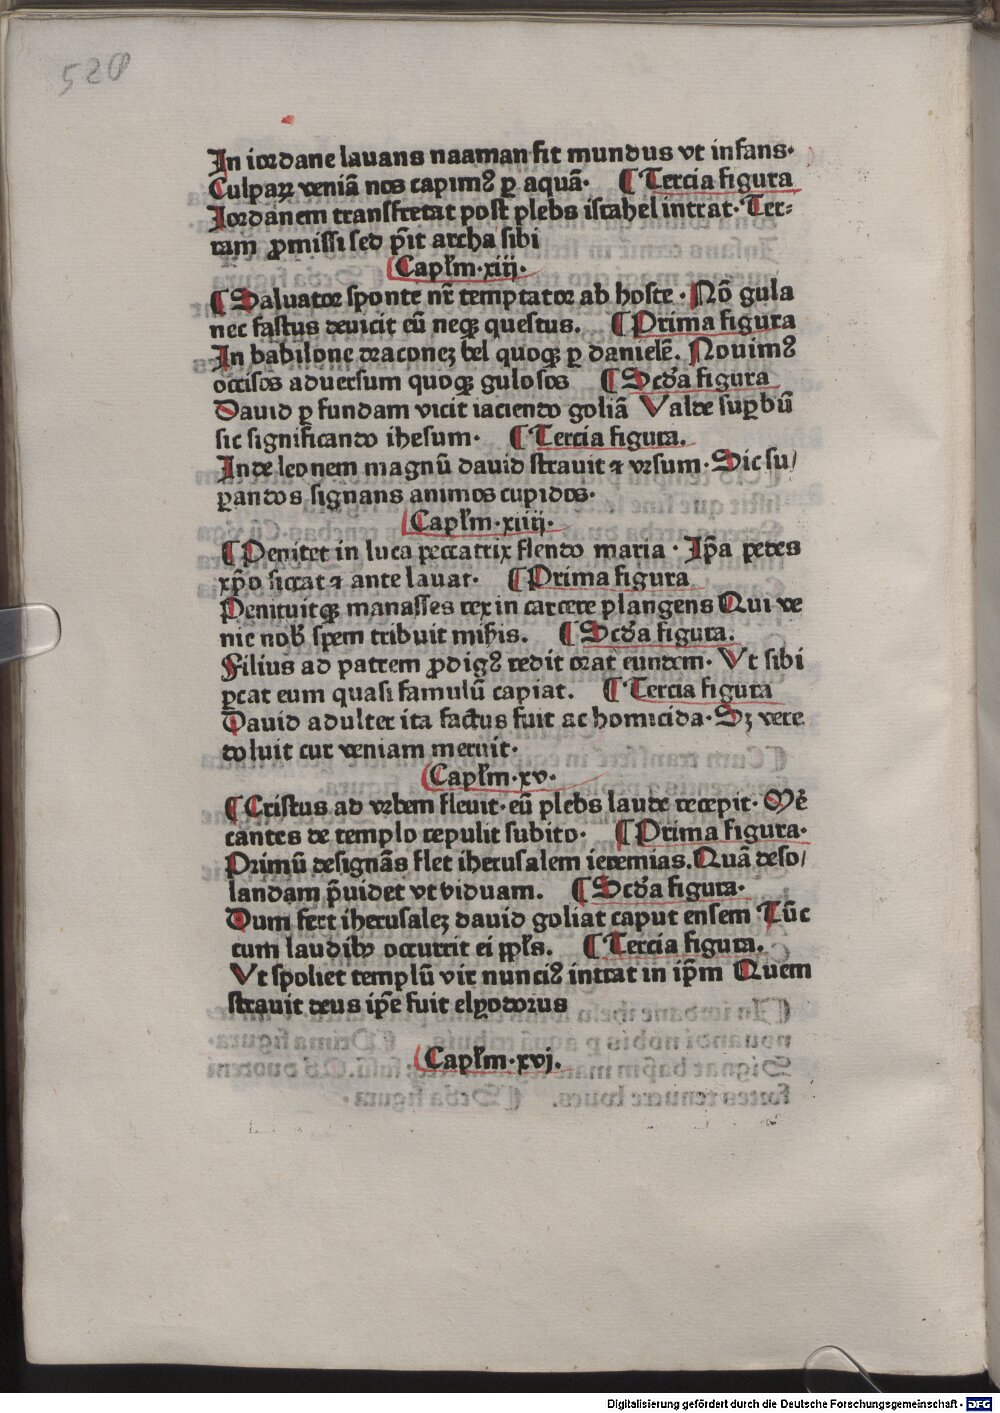 528
In iordane lauans naaman fit mundus vt infans·
Culpaꝝ veniā nos capimꝰ ꝑ aquā· ¶ Tercia figura
Iordanem transfretat post plebs israhel intrat· Ter⸗
ram ꝓmissi sed p̄it archa sibi
Capl'm·xiij·
¶ Saluator sponte nr̄ temptator ab hoste· Nō gula
nec fastus deuicit eū neqꝫ questus. ¶ Prima figura
In babilone draconeꝫ bel quoqꝫ ꝑ danielē. Nouimꝰ
occisos aduersum quoqꝫ gulosos ¶ Scd'a figura
Dauid ꝑ fundam vicit iaciendo goliā Valde suꝑbū
sic significando ihesum· ¶ Tercia figura.
Inde leonem magnū dauid strauit ⁊ vrsum· Sic su/
ꝑandos signans animos cupidos·
Capl'm·xiiij·
¶ Penitet in luca peccatrix flendo maria· Ip̄a pedes
xp̄o siccat ⁊ ante lauat· ¶ Prima figura
Penituitqꝫ manasses rex in carcere plangens Qui ve
nie nob' spem tribuit mihis. ¶ Scd'a figura.
Filius ad patrem ꝓdigꝰ redit orat eundem· Vt sibi
ꝑcat eum quasi famulū capiat. ¶ Tercia figura
Dauid adulter ita factus fuit ac homicida· Sꝫ vere
doluit cur veniam meruit·
Capl'm·xv·
¶ Cristus ad vrbem fleuit· eū plebs laude recepit· Mē
cantes de templo repulit subito· ¶ Prima figura·
Primū designās flet iherusalem ieremias. Quā deso/
landam p̄uidet vt viduam. ¶ Scd'a figura·
Dum fert iherusaleꝫ dauid goliat caput ensem Tūc
cum laudibꝰ occurrit ei ppl's. ¶ Tercia figura.
Vt spoliet templū vir nunciꝰ intrat in ip̄m Quem
strauit deus ip̄e fuit elyodorus
Capl'm·xvj.
Digitalisierung gefördert durch die Deutsche Forschungsgemeinschaft - DFG